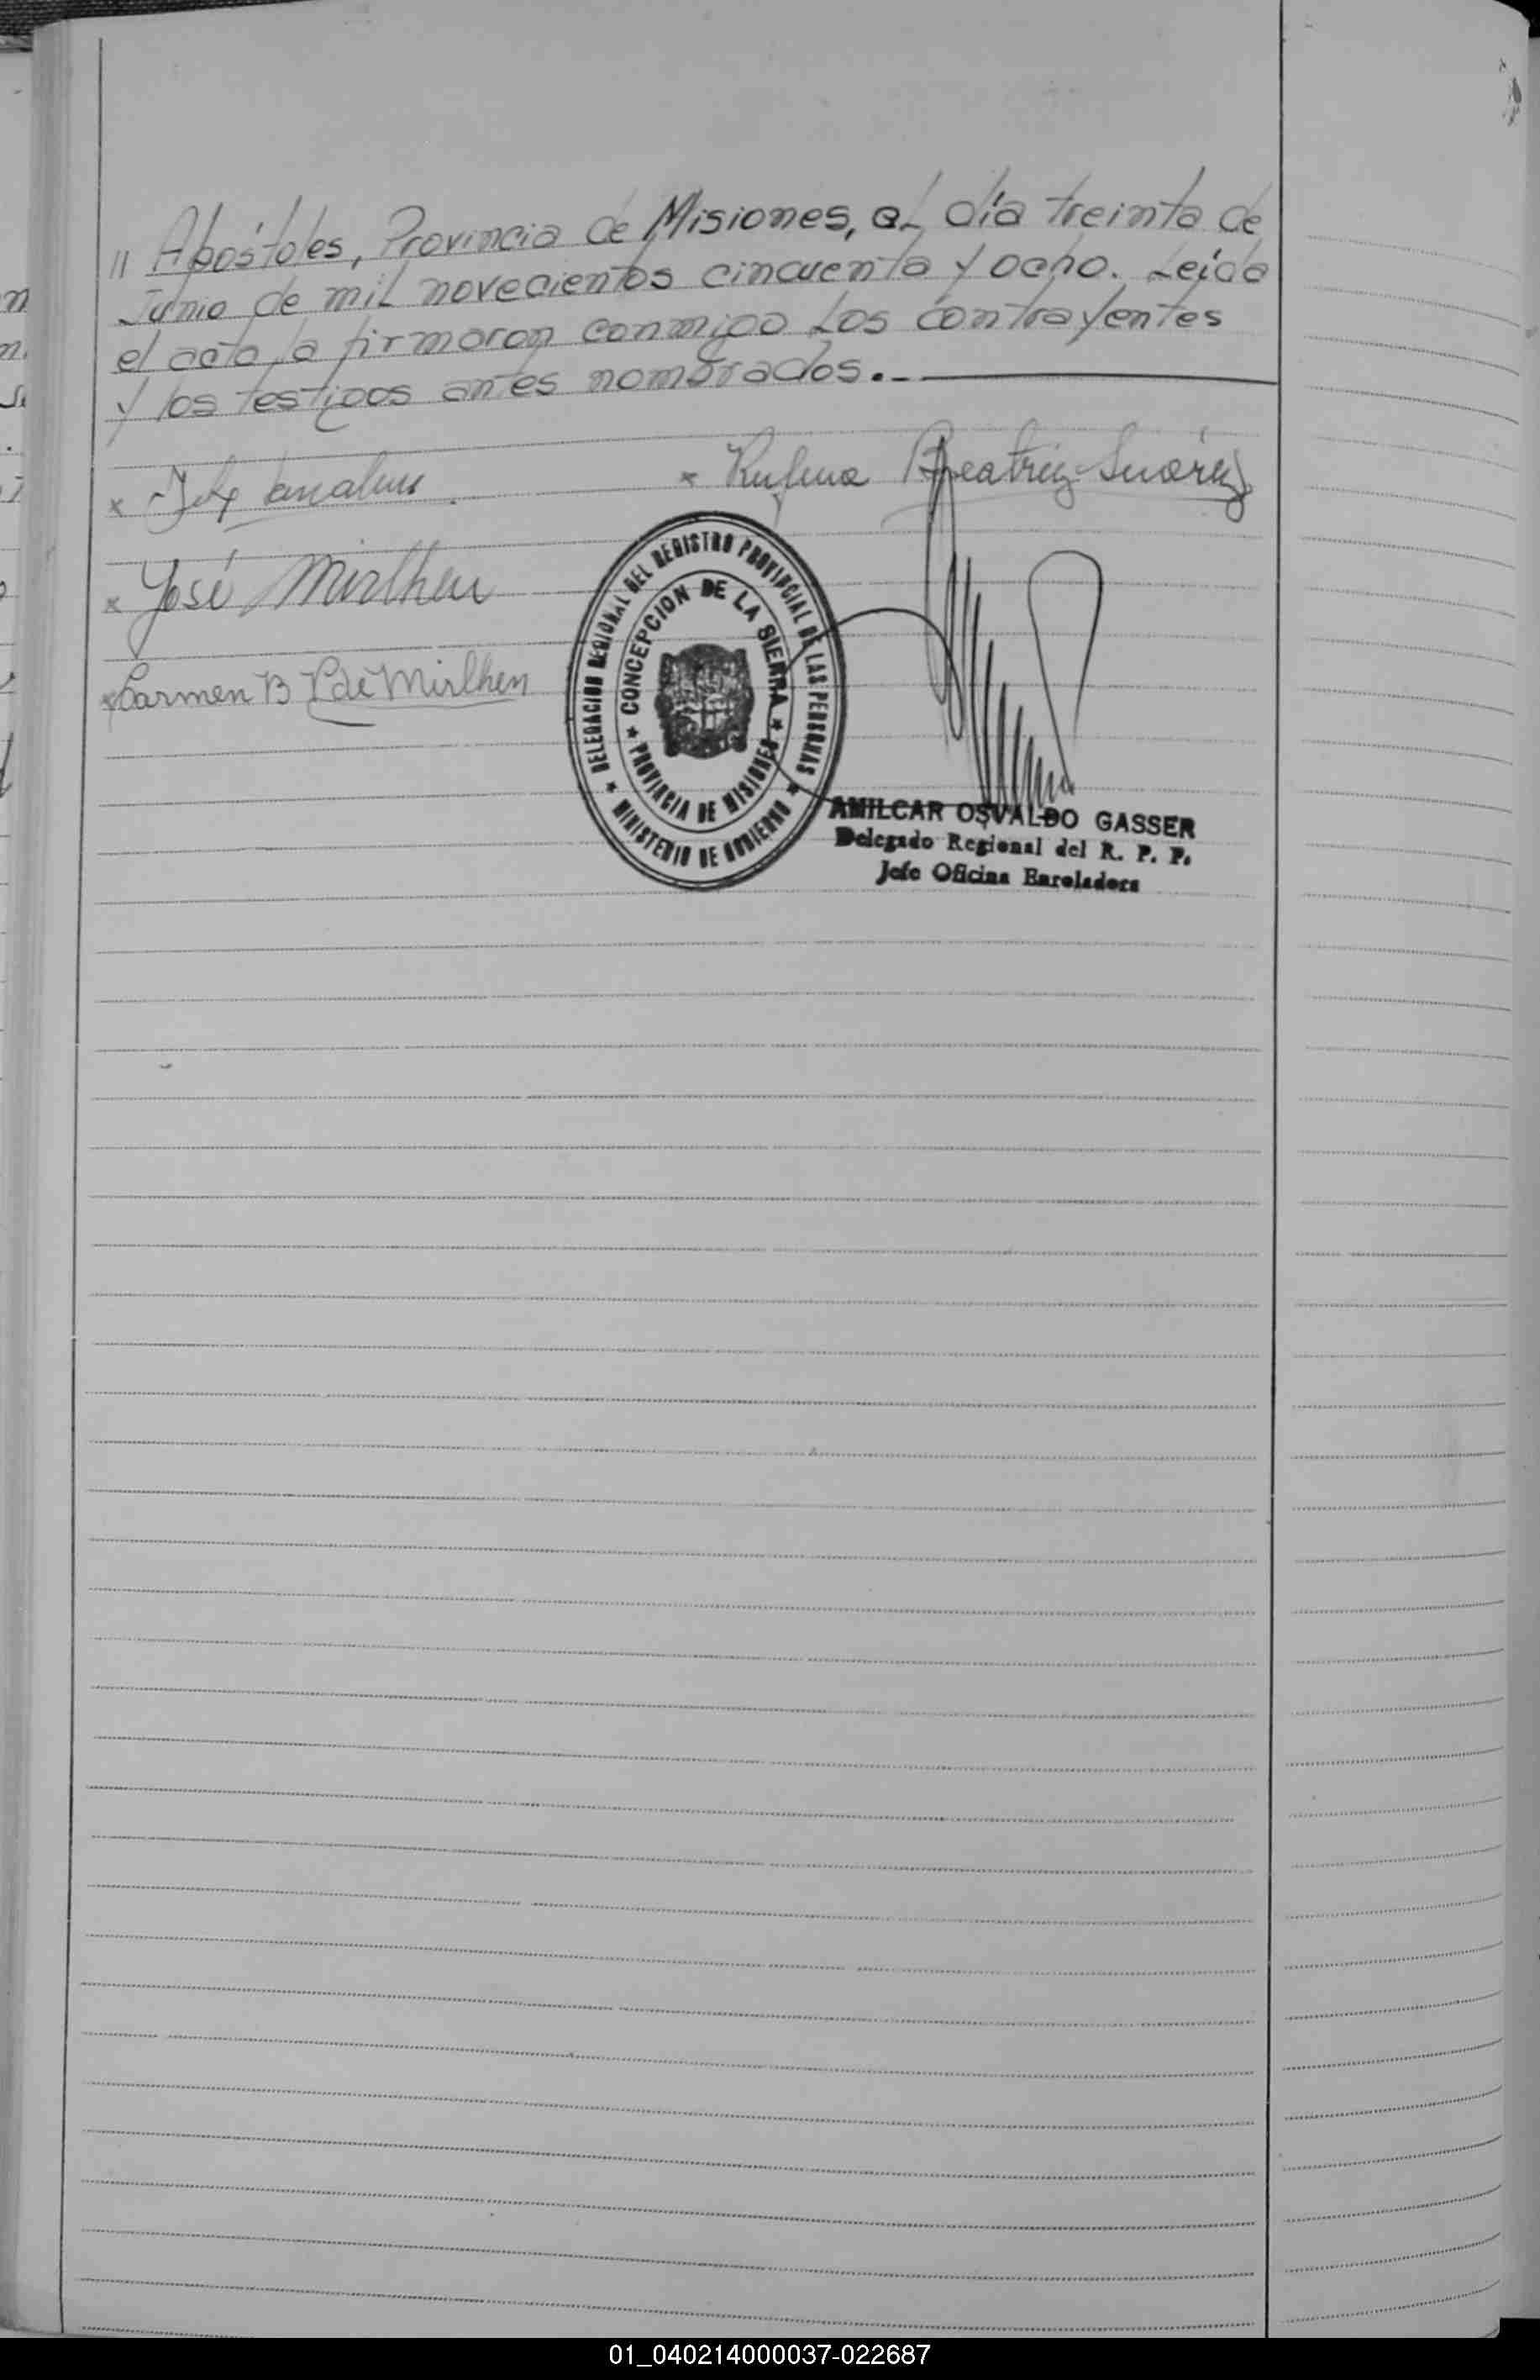 " Apóstoles, Provincia de Misiones, el día treinta de
Junio de mil novecientos cincuenta y ocho. Leida
el acta, la firmaron conmigo los contrayentes
y los testigos antes nombrados.-
x
x Rufina Beatriz Suárez
x José Mirlhen
x Carmen B P de Mirlhen
DELEGACION REGIONAL DEL REGISTRO PROVINCIAL DE LAS PERSONAS
★ MINISTERIO DE GOBIERNO ★
CONCEPCION DE LA SIERRA
★ PROVINCIA DE MISIONES ★
AMILCAR OSVALDO GASSER
Delegado Regional del R. P. P.
Jefe Oficina Enroladora
01_040214000037-022687